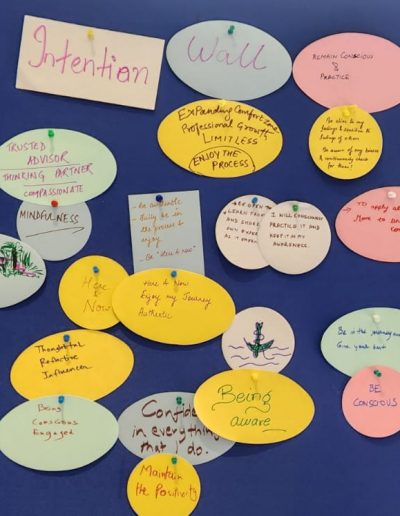 Intention
Wall
REMAIN CONSCIOUS
&
PRACTICE
Expanding Comfort zone
Professional Growth
LIMITLESS
ENJOY THE
PROCESS
Be alive to my
feelings & sensitive to
feelings of others
Be aware of my biases
& continuously check
for them!
TRUSTED
ADVISOR
THINKING PARTNER
COMPASSIONATE
MINDFULNESS
- Be authentic
- Fully be in
the process &
enjoy
- Be "Here & Now"
BE OPEN
LEARN FROM
AND SHARE
OWN EXPER
AS IT EMER
I WILL CONSCIOUSLY
PRACTICE IT AND
KEEP IT IN MY
AWARENESS
TO apply
More to
Here
&
Now
Here & Now
Enjoy my Journey
Authentic
Thoughtful
Reflective
Influencer
Be in the journey
Give your best
BE
CONSCIOUS
Being
Conscious
Engaged
Confident
in everything
that I do.
Being
aware
Maintain
the Positivity